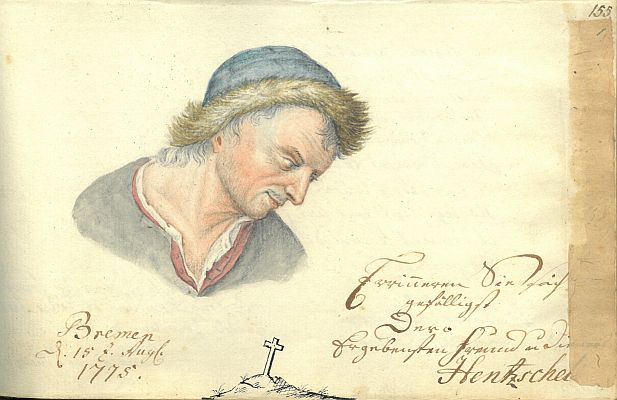 155
Bremen
d. 15 t. Augl.
1775.
Errinneren Sie sich
gefälligst
Dero
Ergebensten Freund u Diener
Hentzschel